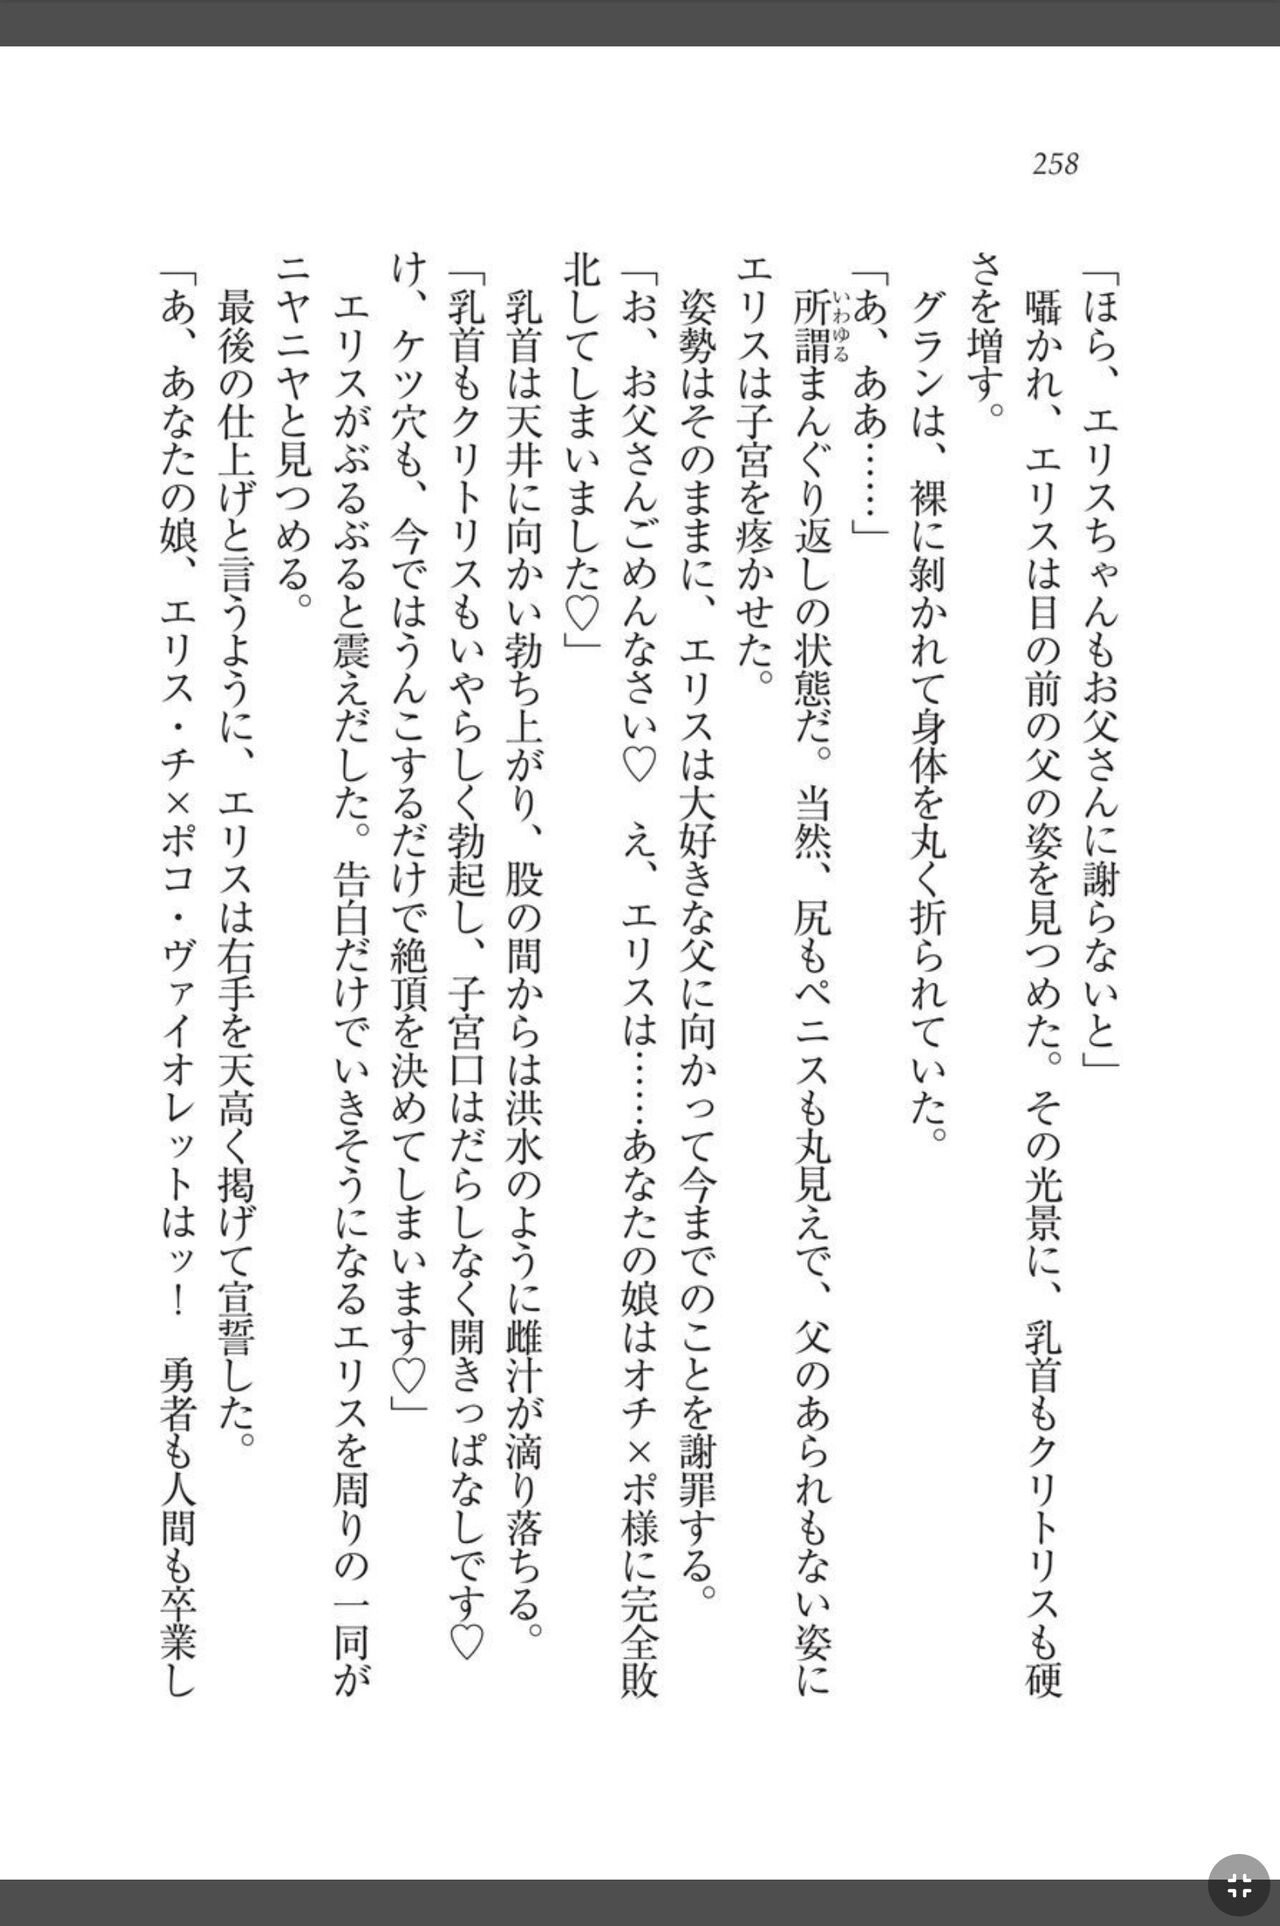 258
「ほら、エリスちゃんもお父さんに謝らないと」
囁かれ、エリスは目の前の父の姿を見つめた。その光景に、乳首もクリトリスも硬
さを増す。
グランは、裸に剝かれて身体を丸く折られていた。
「あ、ああ……」
所謂まんぐり返しの状態だ。当然、尻もペニスも丸見えで、父のあられもない姿に
いわゆる
エリスは子宮を疼かせた。
姿勢はそのままに、エリスは大好きな父に向かって今までのことを謝罪する。
「お、お父さんごめんなさい♡　え、エリスは……あなたの娘はオチ×ポ様に完全敗
北してしまいました♡」
乳首は天井に向かい勃ち上がり、股の間からは洪水のように雌汁が滴り落ちる。
「乳首もクリトリスもいやらしく勃起し、子宮口はだらしなく開きっぱなしです♡
け、ケツ穴も、今ではうんこするだけで絶頂を決めてしまいます♡」
エリスがぶるぶると震えだした。告白だけでいきそうになるエリスを周りの一同が
ニヤニヤと見つめる。
最後の仕上げと言うように、エリスは右手を天高く掲げて宣誓した。
「あ、あなたの娘、エリス・チ×ポコ・ヴァイオレットはッ！　勇者も人間も卒業し